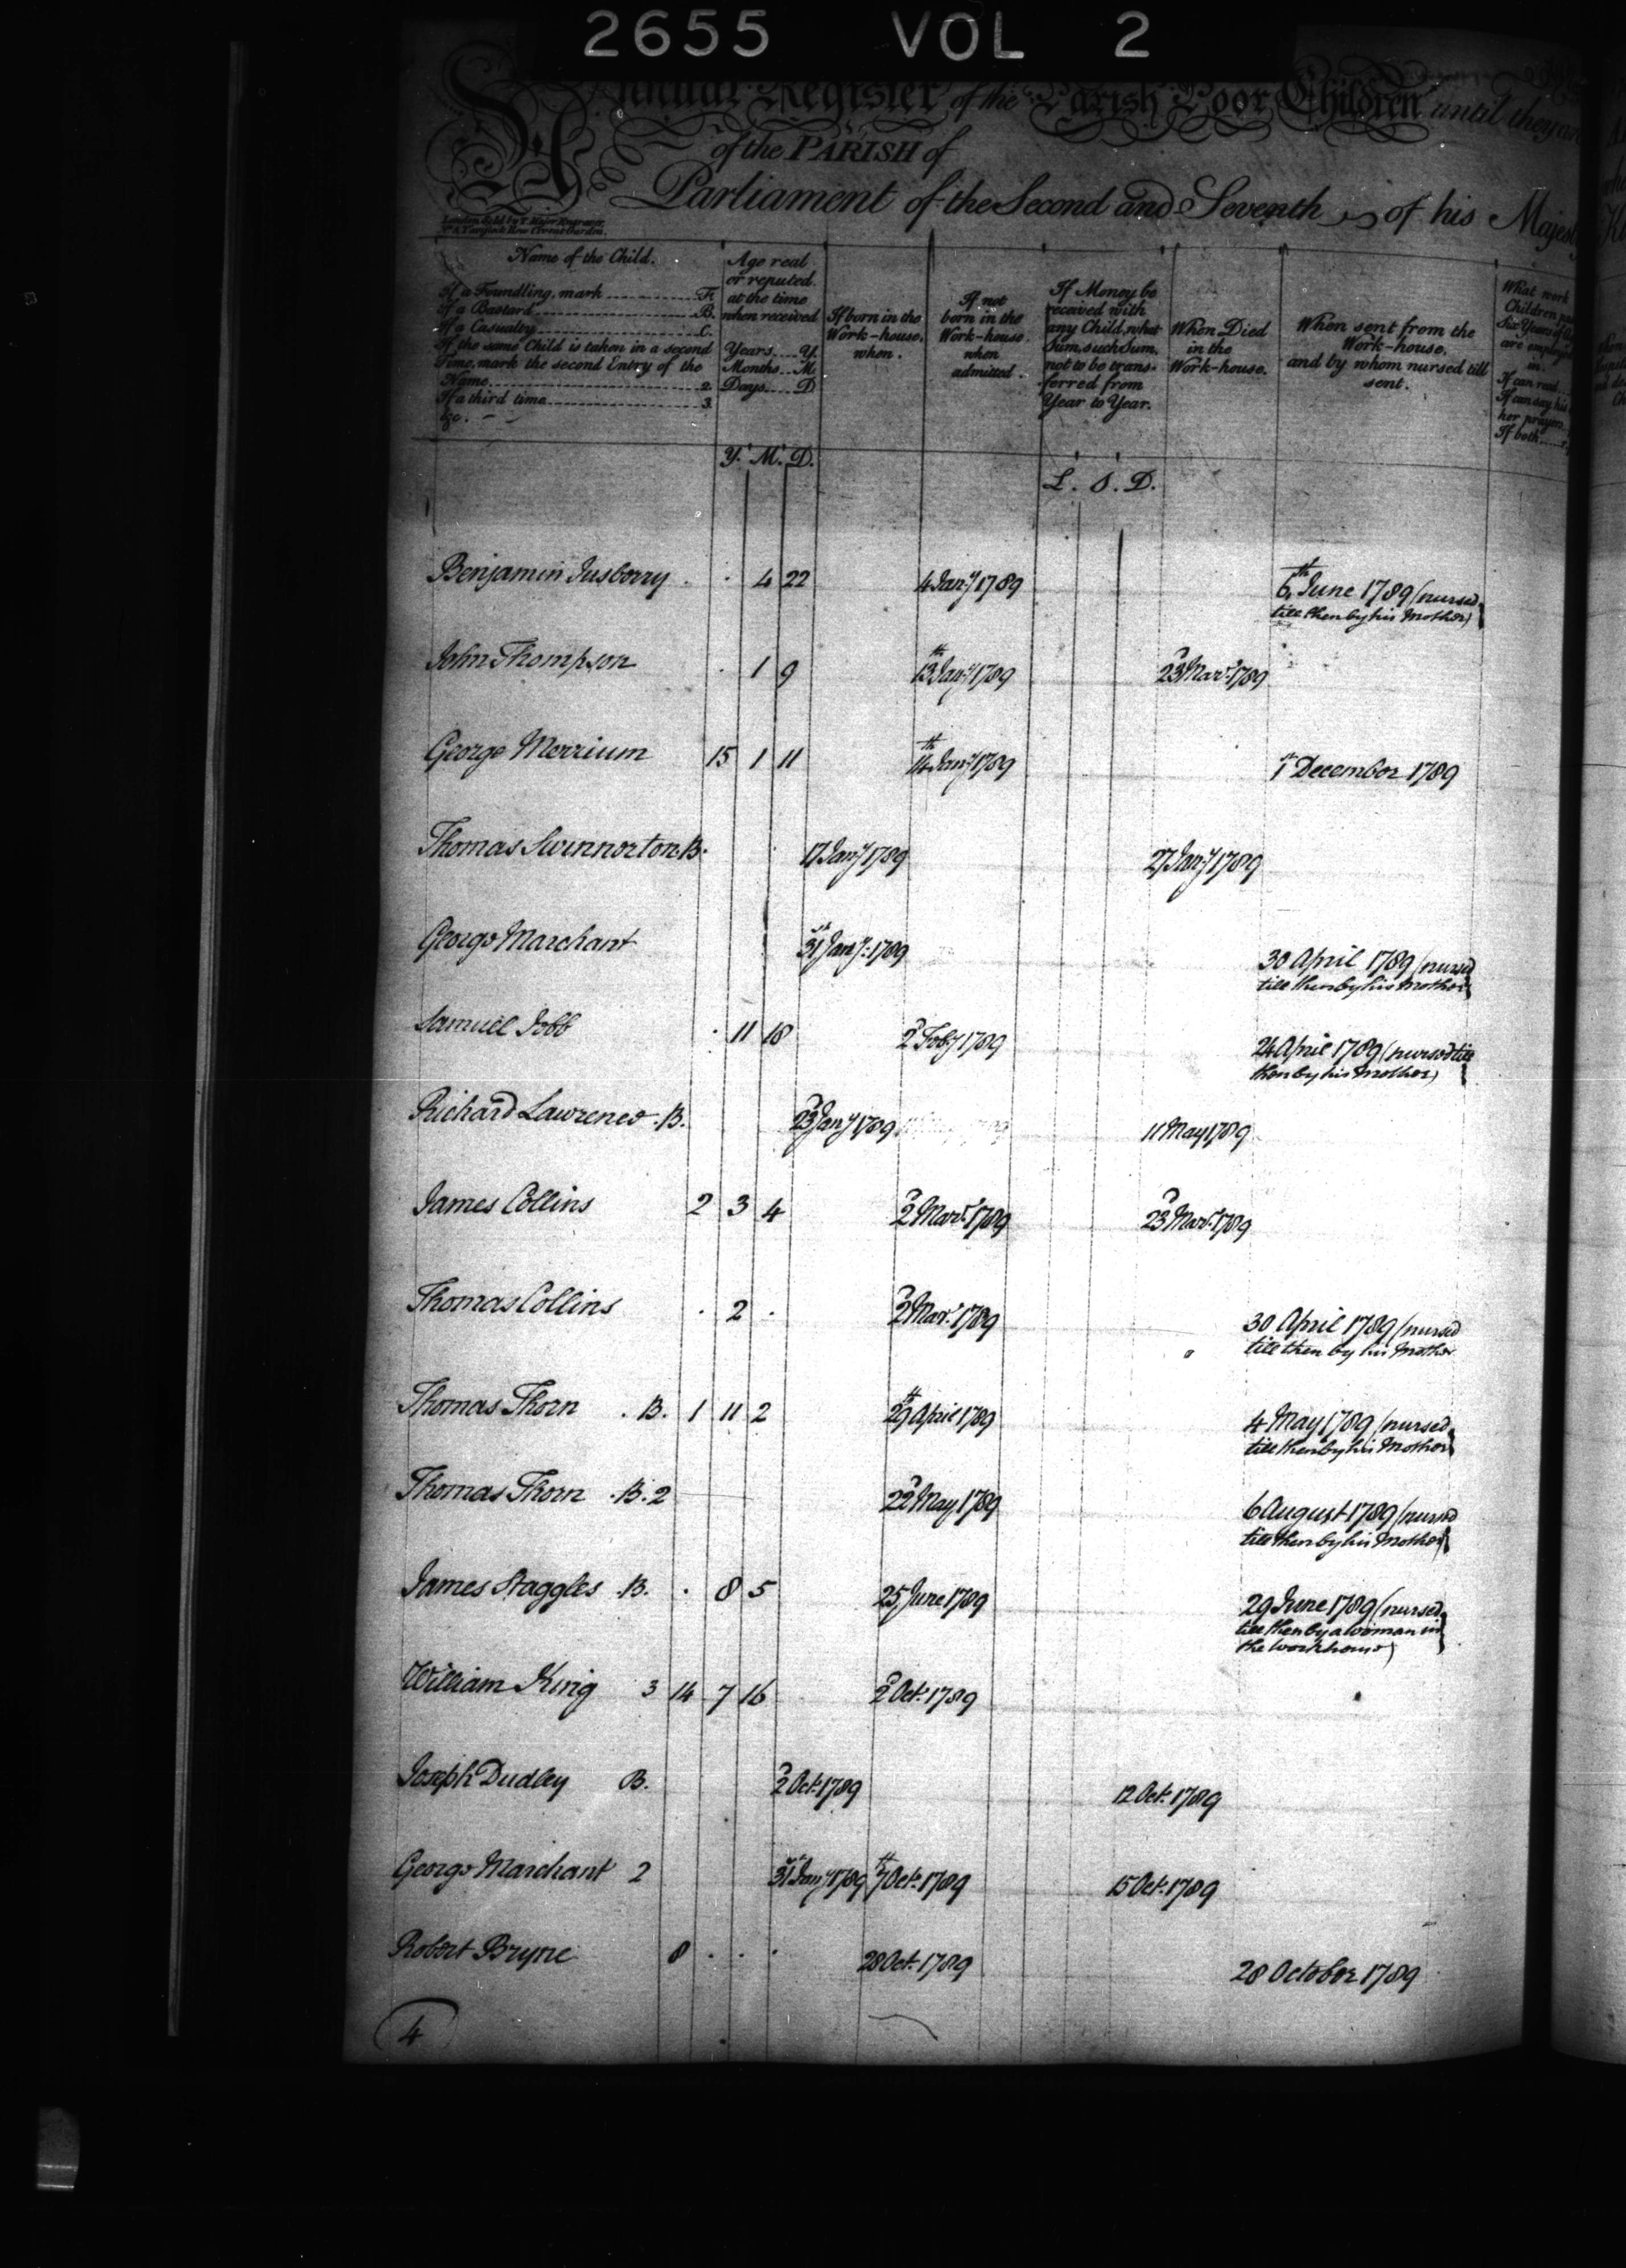 2655 VOL 2
Annual Register of the Parish Poor Children until they are
of the PARISH of
Parliament of the Second and Seventh of his Majesty
London Sold by T. Major Engraver
Name of the Child.
If a Foundling, mark F.
If a Bastard B.
If a Casualty C.
If the same Child is taken in a second
Time, mark the second Entry of the
Name 2.
If a third time 3.
&c.
Age real
or reputed
at the time
when received
Years Y.
Months M.
Days D.
If born in the
Work-house,
when.
If not
born in the
Work-house,
when
admitted.
If Money be
received with
any Child, what
Sum, such Sum,
not to be trans-
ferred from
Year to Year.
When Died
in the
Work-house.
When sent from the
Work-house,
and by whom nursed till
sent.
What work
Children
Six Years of
are employ
in.
If can read
If can say his
her prayers
If both
Y. M. D.
L. S. D.
Benjamin Jusborry . . 4 22 4 Jany 1789 6th June 1789 (nursed
till then by his Mother)
John Thompson . 1 9 13th Jany 1789 23d Mar. 1789
George Merrium 15 1 11 14th Jany 1789 1st December 1789
Thomas Swinnorton B. 17 Jany 1789 27 Jany 1789
George Marchant 31st Jany. 1789 30 April 1789 (nursed
till then by his Mother)
Samuel Jobb . 11 18 2d Feby 1789 24 April 1789 (nursed till
then by his Mother)
Richard Lawrence .B. 23d Jany 1789 11 May 1789
James Collins 2 3 4 2d Mar. 1789 23d Mar. 1789
Thomas Collins . 2 . 2d Mar. 1789 30 April 1789 (nursed
till then by his Mother
Thomas Thorn . B. 1 11 2 29th April 1789 4 May 1789 (nursed
till then by his Mother)
Thomas Thorn .B. 2 22d May 1789 6 August 1789 (nursed
till then by his Mother)
James Staggles .B. . 8 5 25 June 1789 29 June 1789 (nursed
till then by a woman in
the workhouse)
William King 3 14 7 16 2d Oct. 1789
Joseph Dudley B. 2d Oct. 1789 12 Oct. 1789
George Marchant 2 31st Jany 1789 7th Oct. 1789 15 Oct. 1789
Robert Bryne 8 . . . 28 Oct. 1789 28 October 1789
4